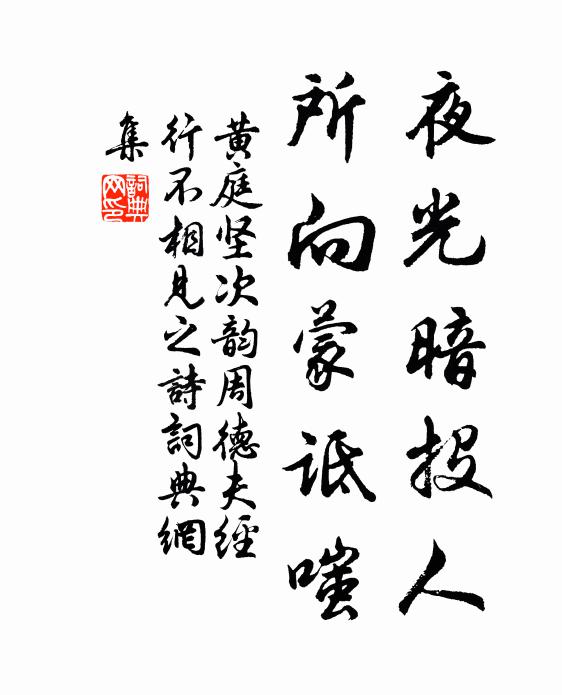 夜光暗投人
所向蒙诋嗤
黄庭坚次韵周德夫經
行不相見之詩詞典網
集
詞典网印